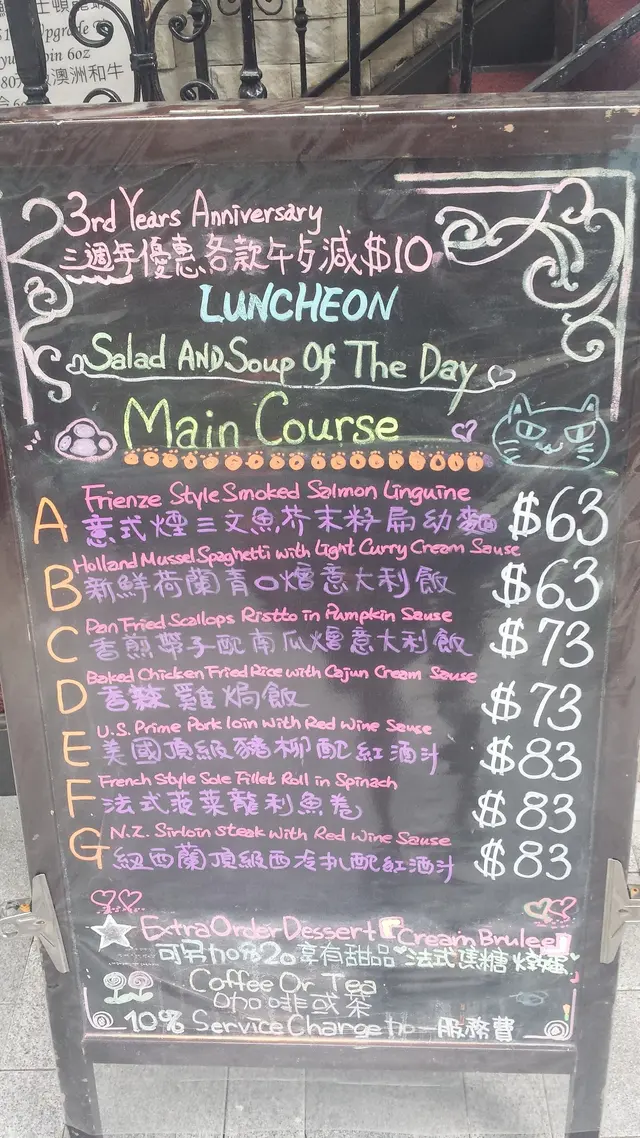 Upgrade
oin 6oz
澳洲和牛
3rd Years Anniversary
三週年優惠各款午歺減$10
LUNCHEON
Salad AND Soup Of The Day
Main Course
A Frienze Style Smoked Salmon Linguine
意式煙三文魚芥末籽扁幼麵 $63
Holland Mussel Spaghetti with Light Curry Cream Sause
B 新鮮荷蘭青口燴意大利飯 $63
Pan Fried Scallops Ristto in Pumpkin Sause
C 香煎帶子配南瓜燴意大利飯 $73
Baked Chicken Fried Rice with Cajun Cream Sause
D 香辣雞焗飯 $73
U.S. Prime Pork loin With Red Wine Sause
E 美國頂級豬柳配紅酒汁 $83
French Style Sole Fillet Roll in Spinach
F 法式菠菜龍利魚卷 $83
N.Z. Sirloin steak with Red Wine Sause
G 紐西蘭頂級西冷扒配紅酒汁 $83
Extra Order Dessert Cream Brulee
可另加$20享有甜品 法式焦糖燉蛋
Coffee Or Tea
咖啡或茶
10% Service Charge 加一服務費